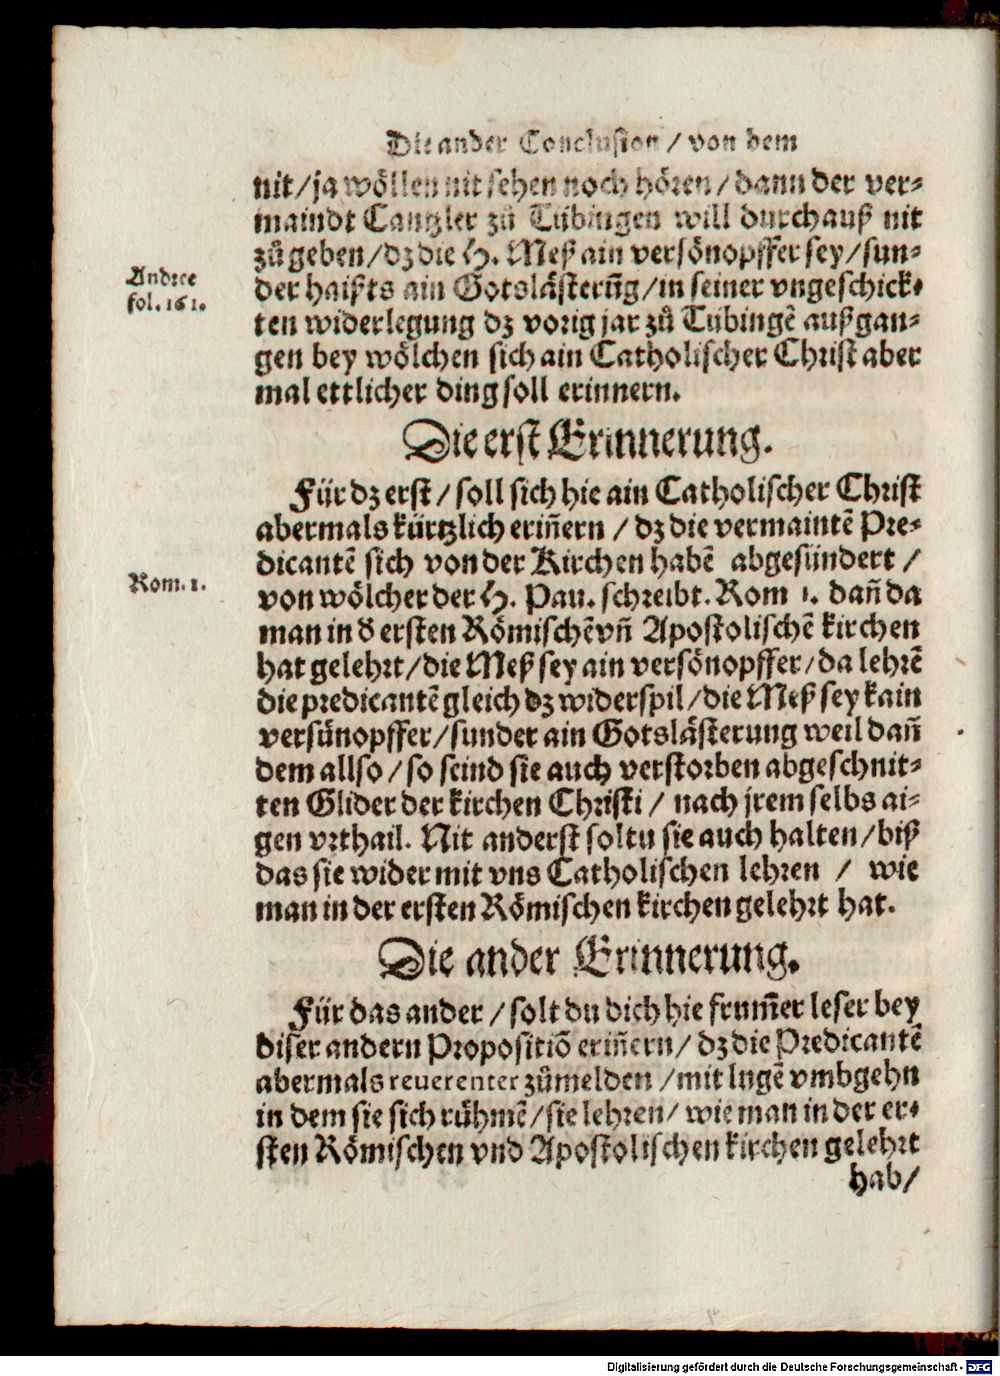 Die ander Conclusion / von dem
nit / ja wöllen nit sehen noch hören / dann der ver⸗
maindt Cantzler zů Tübingen will durchauß nit
zůgeben / dz die H. Meß ain versönopffer sey / sun⸗
der haißts ain Gotslästerung̃ / in seiner vngeschick⸗
ten widerlegung dz vorig jar zů Tübingẽ außgan⸗
gen bey wölchen sich ain Catholischer Christ aber
mal ettlicher ding soll erinnern.
Andree
fol. 161.
Die erst Erinnerung.
Für dz erst / soll sich hie ain Catholischer Christ
abermals kürtzlich erin̄ern / dz die vermaintẽ Pre⸗
dicantẽ sich von der Kirchen habẽ abgesündert /
von wölcher der H. Pau. schreibt. Rom 1. dan̄ da
man in d ersten Römischẽ vn̄ Apostolischẽ kirchen
hat gelehrt / die Meß sey ain versönopffer / da lehrẽ
die predicantẽ gleich dz widerspil / die Meß sey kain
versünopffer / sunder ain Gotslästerung weil dan̄
dem allso / so seind sie auch verstorben abgeschnit⸗
ten Glider der kirchen Christi / nach jrem selbs ai⸗
gen vrthail. Nit anderst soltu sie auch halten / biß
das sie wider mit vns Catholischen lehren / wie
man in der ersten Römischen kirchen gelehrt hat.
Rom. 1.
Die ander Erinnerung.
Für das ander / solt du dich hie frum̄er leser bey
diser andern Propositiõ erin̄ern / dz die Predicantẽ
abermals reuerenter zůmelden / mit lugẽ vmbgehn
in dem sie sich rühmẽ / sie lehren / wie man in der er⸗
sten Römischen vnd Apostolischen kirchen gelehrt
hab /
Digitalisierung gefördert durch die Deutsche Forschungsgemeinschaft - DFG